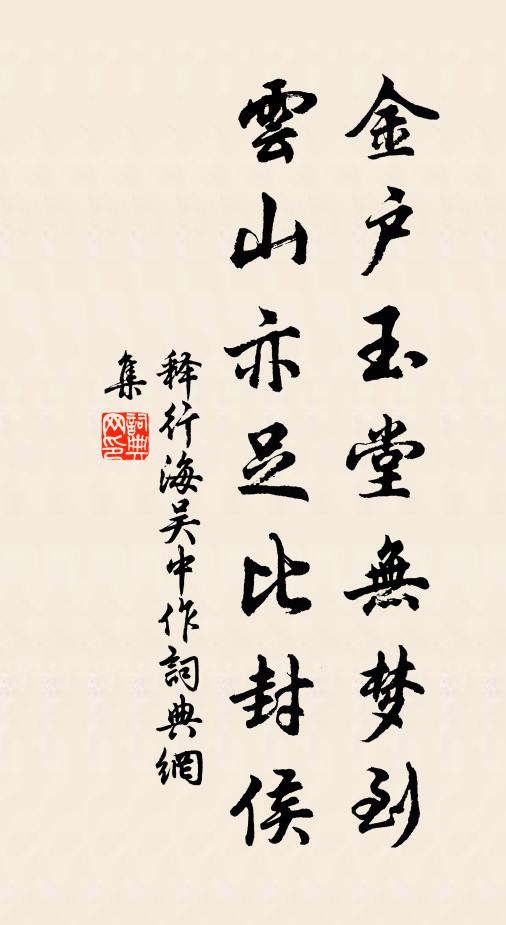 金户玉堂無梦到
雲山亦足比封侯
释行海吴中作詞典網
集
詞典网印